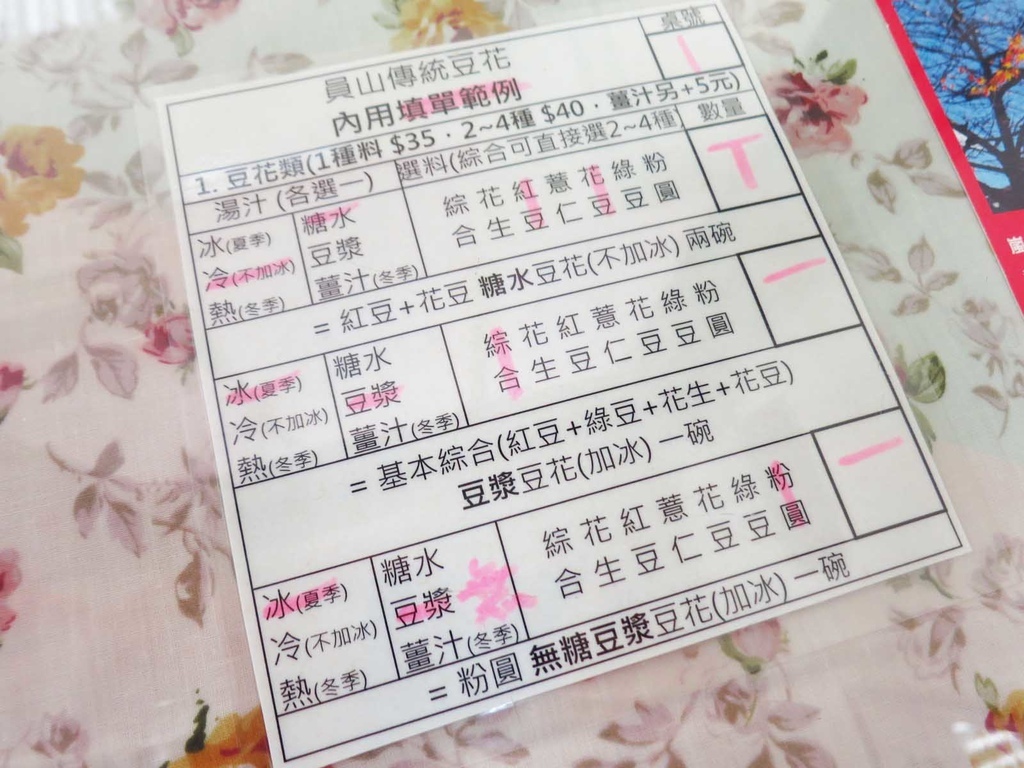 桌號
員山傳統豆花
內用填單範例
豆花類(1種料 $35．2~4種 $40．薑汁另+5元)
1. 豆花類(1種料 $35．2~4種 $40．薑汁另+5元)
湯汁 (各選一)
選料(綜合可直接選2~4種)
數量
冰(夏季)
冷(不加冰)
熱(冬季)
糖水
豆漿
薑汁(冬季)
綜 花 紅 薏 花 綠 粉
合 生 豆 仁 豆 豆 圓
= 紅豆+花豆 糖水豆花(不加冰) 兩碗
冰(夏季)
冷(不加冰)
熱(冬季)
糖水
豆漿
薑汁(冬季)
綜 花 紅 薏 花 綠 粉
合 生 豆 仁 豆 豆 圓
一
= 基本綜合(紅豆+綠豆+花生+花豆)
豆漿豆花(加冰) 一碗
冰(夏季)
冷(不加冰)
熱(冬季)
糖水
豆漿
薑汁(冬季)
綜 花 紅 薏 花 綠 粉
合 生 豆 仁 豆 豆 圓
一
= 粉圓 無糖豆漿豆花(加冰) 一碗